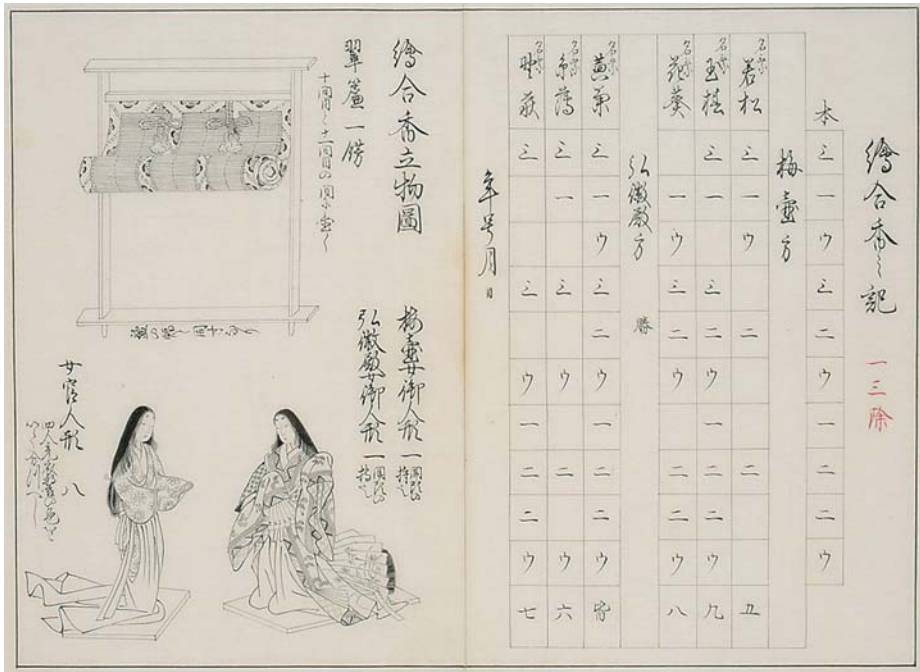 繪合香之記 一三除
本 三一ウ三二ウ一二二ウ
梅壷方
名乗 若松 三一ウ二二 五
名乗 玉椿 三一三二ウ一二ウ 九
名乗 花葵 一ウ三二ウ二二ウ 八
弘徽殿方 勝
名乗 黄菊 三一ウ三二ウ一二二ウ 皆
名乗 糸薄 三一三ウ二ウ 六
名乗 野荻 三三ウ一二二ウ 七
年号月日
繪合香立物圖
翠簾一餝
十間目と十一間目の間に
梅壷女御人形 一
弘徽殿女御人形 一
女官人形 八
四人